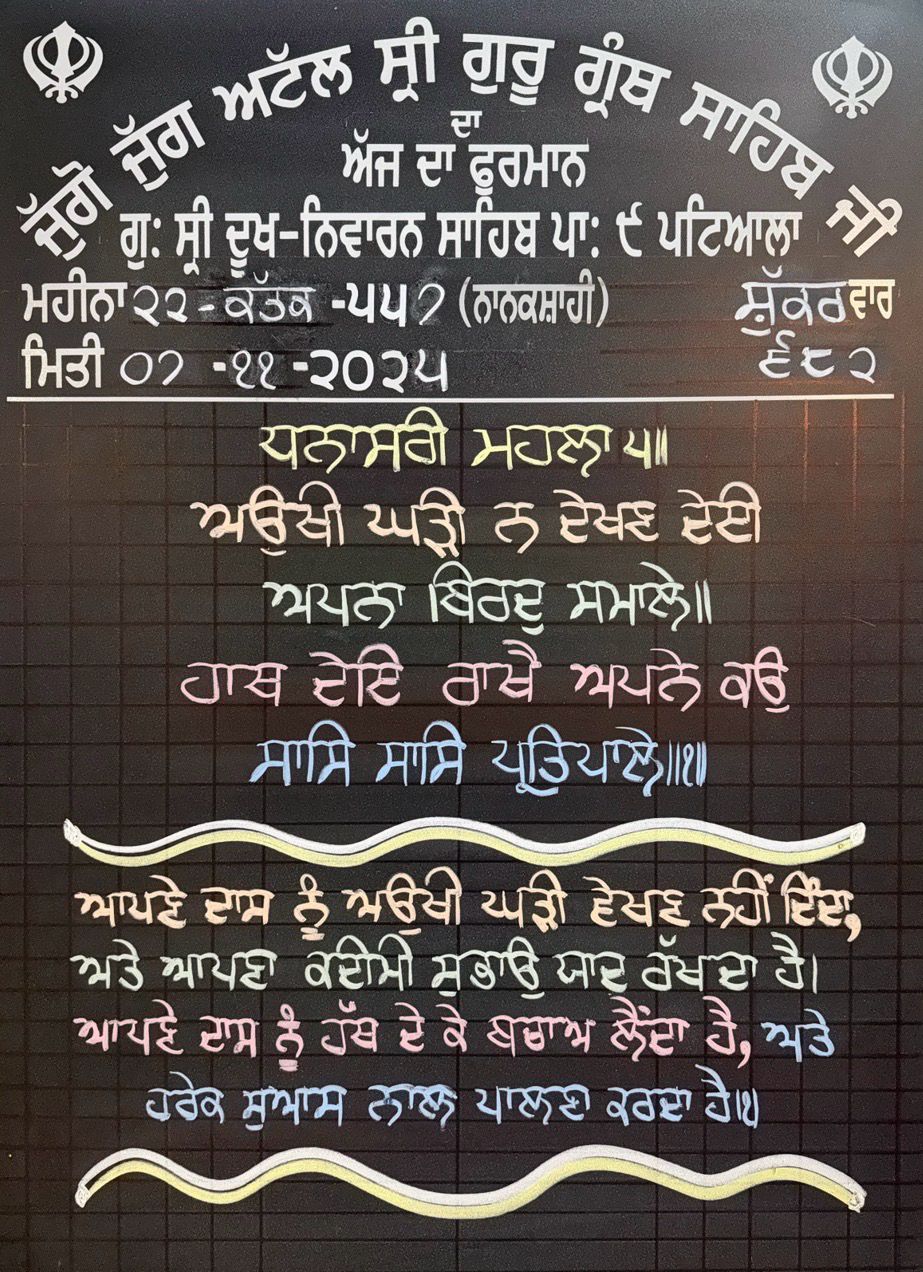 ਜੁੱਗੋ ਜੁੱਗ ਅਟੱਲ ਸ੍ਰੀ ਗੁਰੂ ਗ੍ਰੰਥ ਸਾਹਿਬ ਜੀ
ਦਾ
ਅੱਜ ਦਾ ਫੁਰਮਾਨ
ਗੁ: ਸ੍ਰੀ ਦੂਖ-ਨਿਵਾਰਨ ਸਾਹਿਬ ਪਾ: ੯ ਪਟਿਆਲਾ
ਮਹੀਨਾ ੨੨ - ਕੱਤਕ - ੫੫੭ (ਨਾਨਕਸ਼ਾਹੀ) ਸ਼ੁੱਕਰਵਾਰ
ਮਿਤੀ ੦੭ -੧੧ -੨੦੨੫ ੬੮੨
ਧਨਾਸਰੀ ਮਹਲਾ ੫॥
ਅਉਖੀ ਘੜੀ ਨ ਦੇਖਣ ਦੇਈ
ਅਪਨਾ ਬਿਰਦੁ ਸਮਾਲੇ॥
ਹਾਥ ਦੇਇ ਰਾਖੈ ਅਪਨੇ ਕਉ
ਸਾਸਿ ਸਾਸਿ ਪ੍ਰਤਿਪਾਲੇ॥੧॥
ਆਪਣੇ ਦਾਸ ਨੂੰ ਅਉਖੀ ਘੜੀ ਵੇਖਣ ਨਹੀਂ ਦਿੰਦਾ,
ਅਤੇ ਆਪਣਾ ਕਦੀਮੀ ਸੁਭਾਉ ਯਾਦ ਰੱਖਦਾ ਹੈ।
ਆਪਣੇ ਦਾਸ ਨੂੰ ਹੱਥ ਦੇ ਕੇ ਬਚਾਅ ਲੈਂਦਾ ਹੈ, ਅਤੇ
ਹਰੇਕ ਸੁਆਸ ਨਾਲ ਪਾਲਣਾ ਕਰਦਾ ਹੈ।੧।